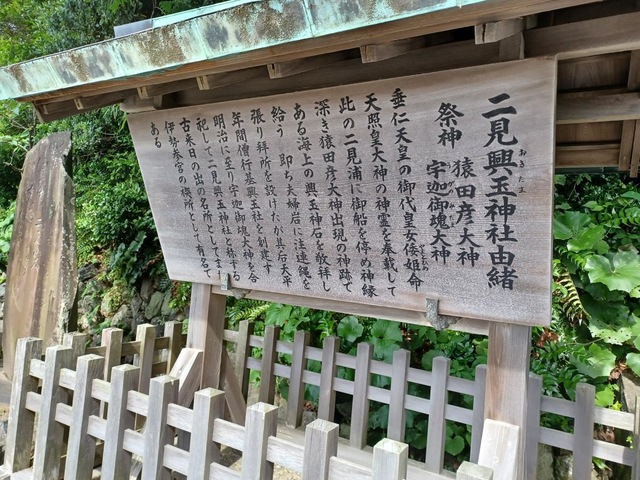 二見興玉神社由緒
おきたま
祭神 猿田彦大神
宇迦御魂大神
垂仁天皇の御代皇女倭姫命
天照皇大神の神霊を戴して
此の二見浦に御船を停め神縁
深き猿田彦大神出現の神跡で
ある海上の興玉神石を敬拝し
給う 即ち夫婦岩に注連縄を
張り拝所を設けたが其后天平
年間僧行基興玉社を創建す
明治に至り宇迦御魂大神を合
祀して二見興玉神社と称する
古来日の出の名所としてまた
伊勢参宮の禊所として有名で
ある